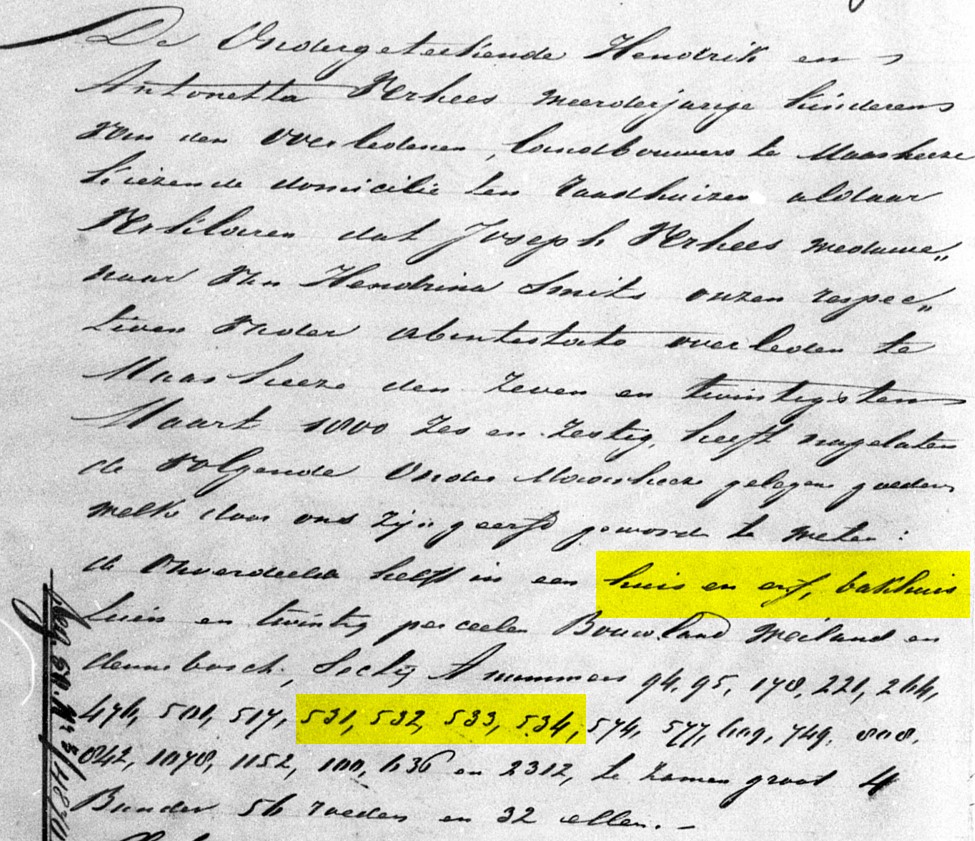 De Ondergeteekende Hendrik en
Antonetta Verhees meerderjarige kinderen
van den overledenen, landbouwers te Maasheeze
kiezende domicilie ten raadhuizen aldaar
Verklaren dat Joseph Verhees weduwe„
naar van Hendrina Smits onzen respec„
tiven vader abintestato overleden te
Maasheeze den zeven en twintigsten
Maart 1800 zes en zestig, heeft nagelaten
de volgende onder Maasheeze gelegen goederen
welke door ons zijn geerfd geworden te weten:
de onverdeelde helft in een huis en erf, bakhuis
tuin en twintig perceelen Bouwland weiland en
dennebosch, Sectie A nummers 94, 95, 178, 221, 264,
476, 501, 517, 531, 532, 533, 534, 574, 577, 609, 749, 808,
842, 1078, 1152, 636 en 2312, te zamen groot 4
Bunder 56 roeden en 32 ellen. –